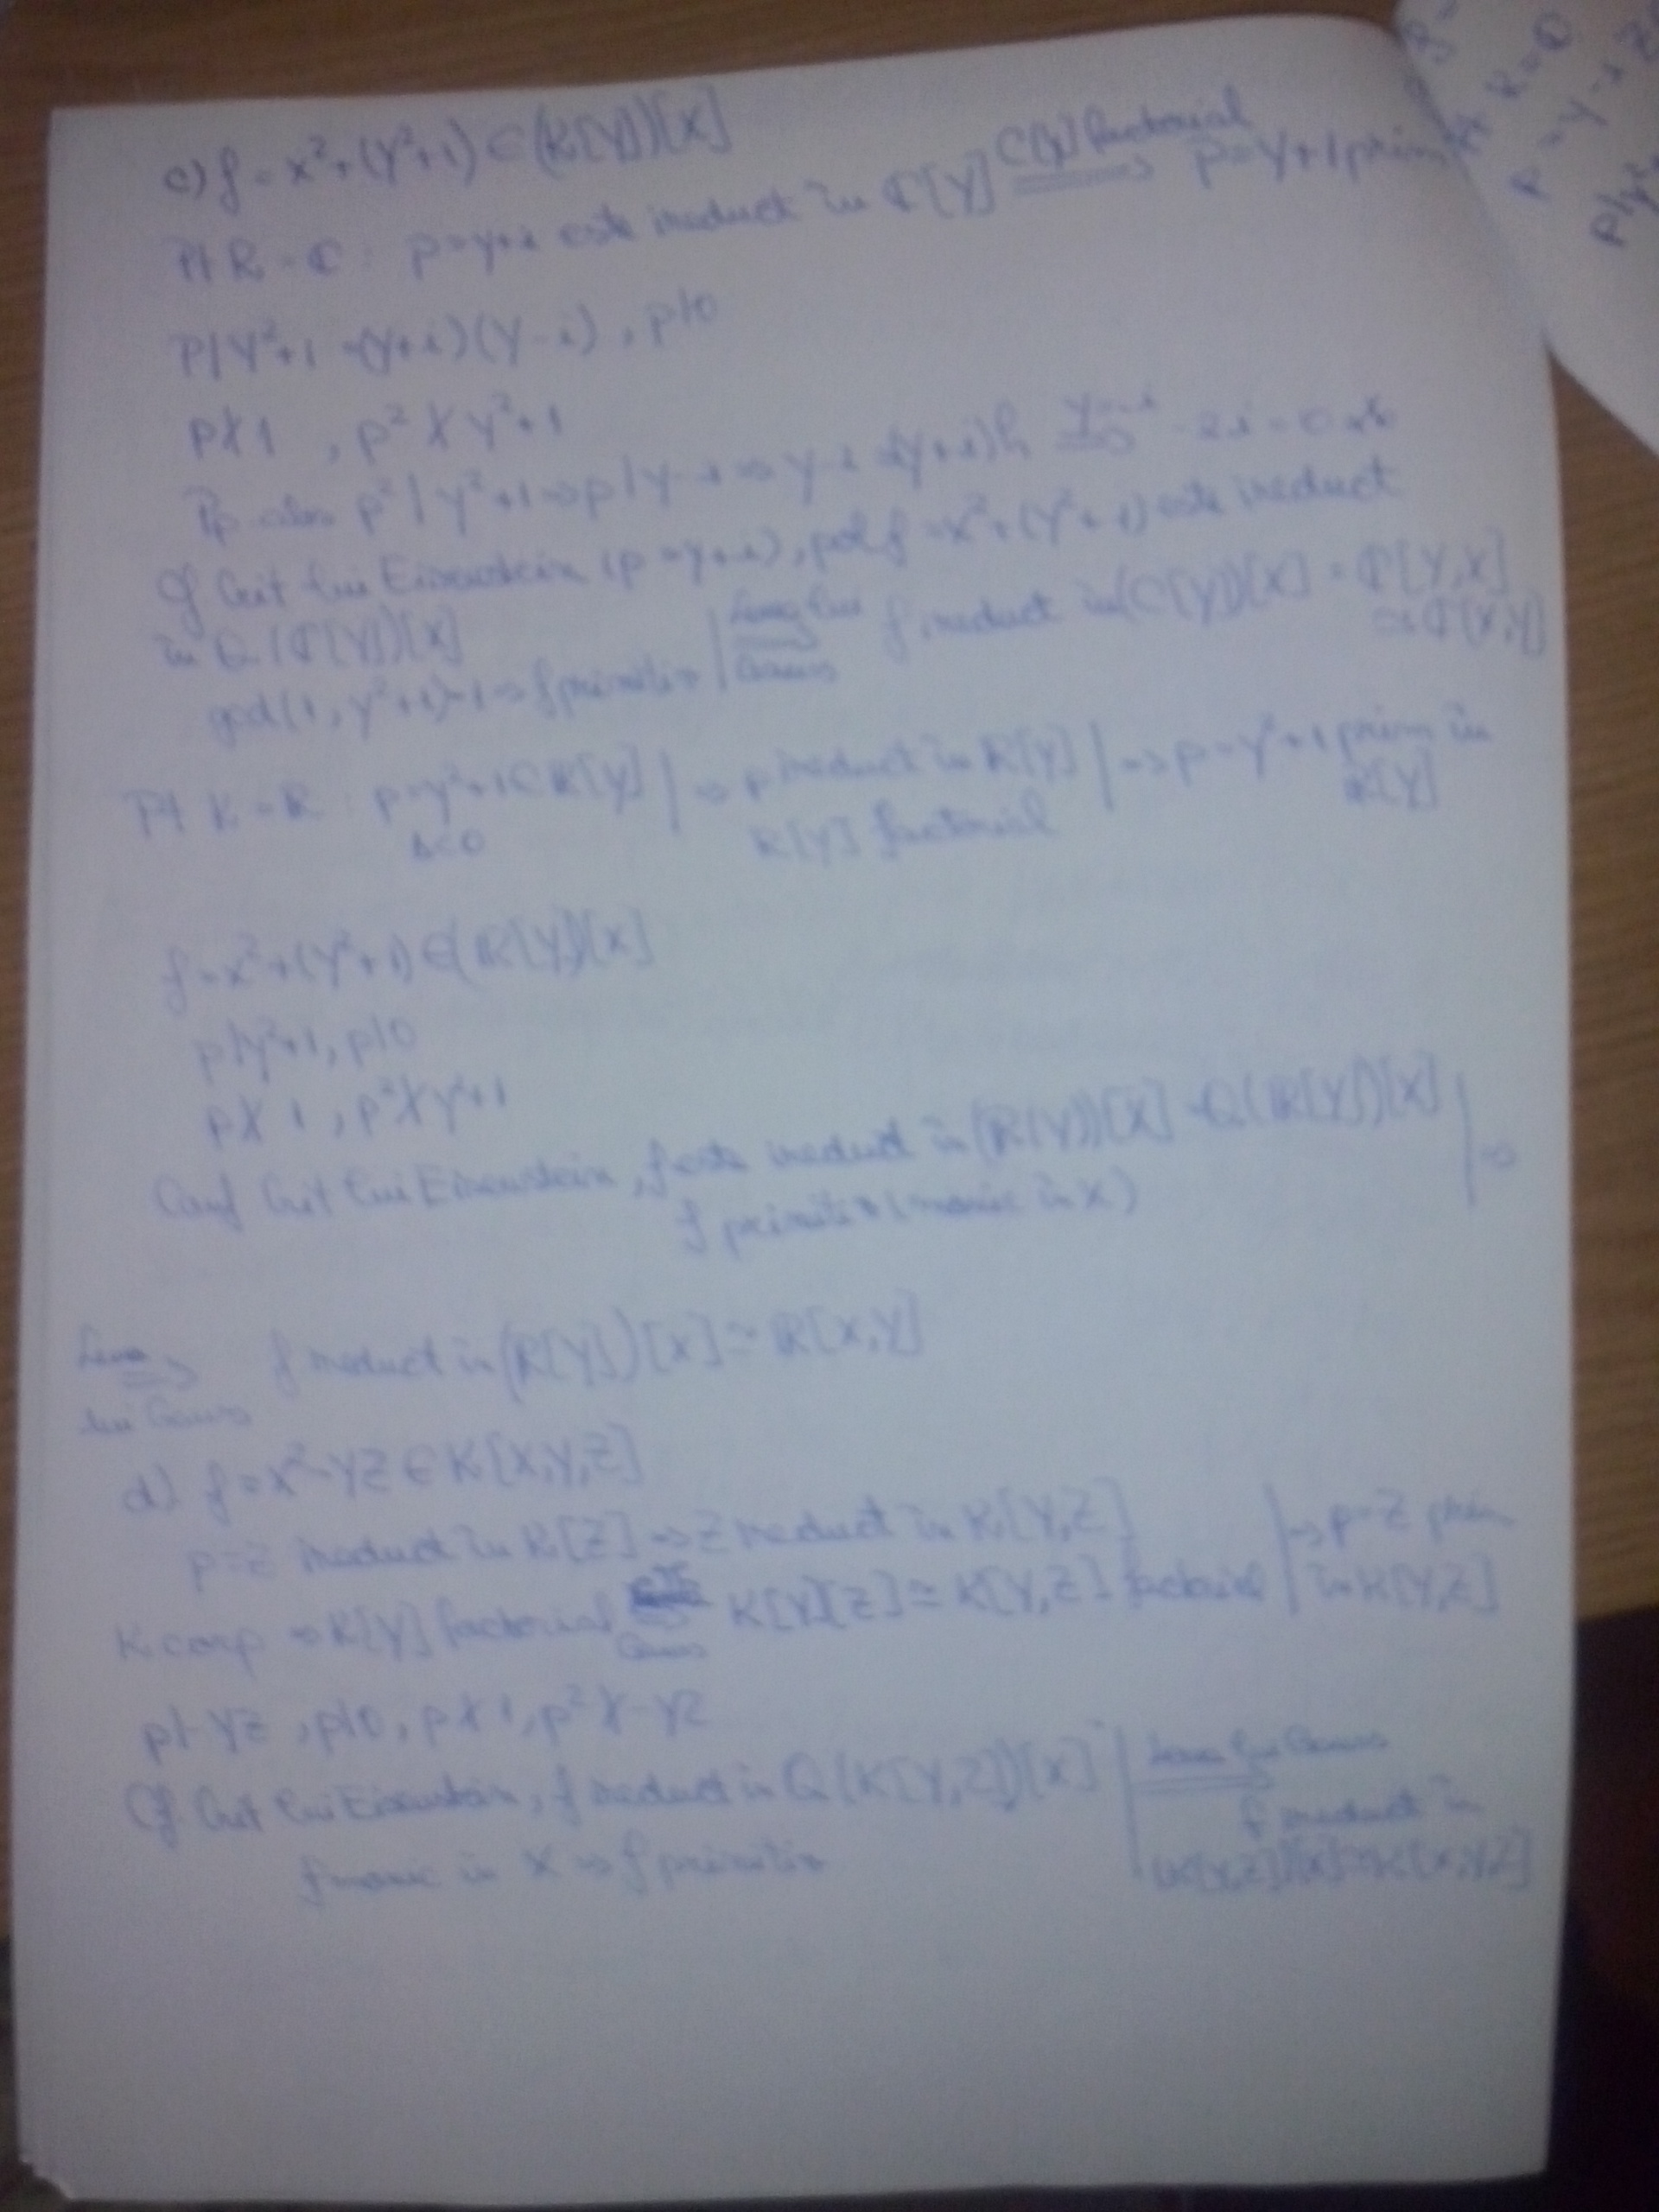 c) f = x²+(y²+1) ⊂ (K[Y])[X]
Pt K = ℂ : p=y+i este ireduct în ℂ[Y] ℂ[y] factorial ⟹ p=Y+i prim
P|Y²+1 =(Y+i)(Y-i), p|0
p∤1 , p² ∤ y²+1
Pp. abs p² | y²+1 ⇒ p|y-i ⇒ y-i =(y+i)h y=-i ⟹ -2i=0
Cf Crit lui Eisenstein (p=y+i), pol f = x²+(Y²+1) este ireduct
în Q(ℂ[Y])[X]
gcd(1, y²+1)=1 ⇒ f primitiv | Lema lui Gauss ⟹ f ireduct in (ℂ[Y])[X] = ℂ[Y,X] ≃ ℂ[X,Y]
Pt K = ℝ : p=y²+1∈ℝ[Y] | ⇒ p ireduct în ℝ[Y] | ⇒ p=y²+1 prim în
Δ<0 ℝ[Y] factorial ℝ[Y]
f=x²+(Y²+1)∈(ℝ[Y])[X]
p|y²+1, p|0
p∤1, p²∤y²+1
Conf Crit lui Eisenstein, f este ireduct în (ℝ(Y))[X] = Q(ℝ[Y])[X] | ⇒
f primitiv (monic în X)
Lema lui Gauss ⟹ f ireduct in (ℝ[Y])[X] ≃ ℝ[X,Y]
d) f = x²-YZ ∈ K[X,Y,Z]
p=Z ireduct în K[Z] ⇒ Z ireduct în K[Y,Z] | ⇒ p=Z prim
K corp ⇒ K[Y] factorial ⟹ Gauss K[Y][Z] ≃ K[Y,Z] factorial | în K[Y,Z]
p|-YZ, p|0, p∤1, p²∤-YZ
Cf Crit lui Eisenstein, f ireduct in Q(K[Y,Z])[X] | Lema lui Gauss ⟹
f monic in X ⇒ f primitiv | f ireduct în
(K[Y,Z])[X] ≃ K[X,Y,Z]